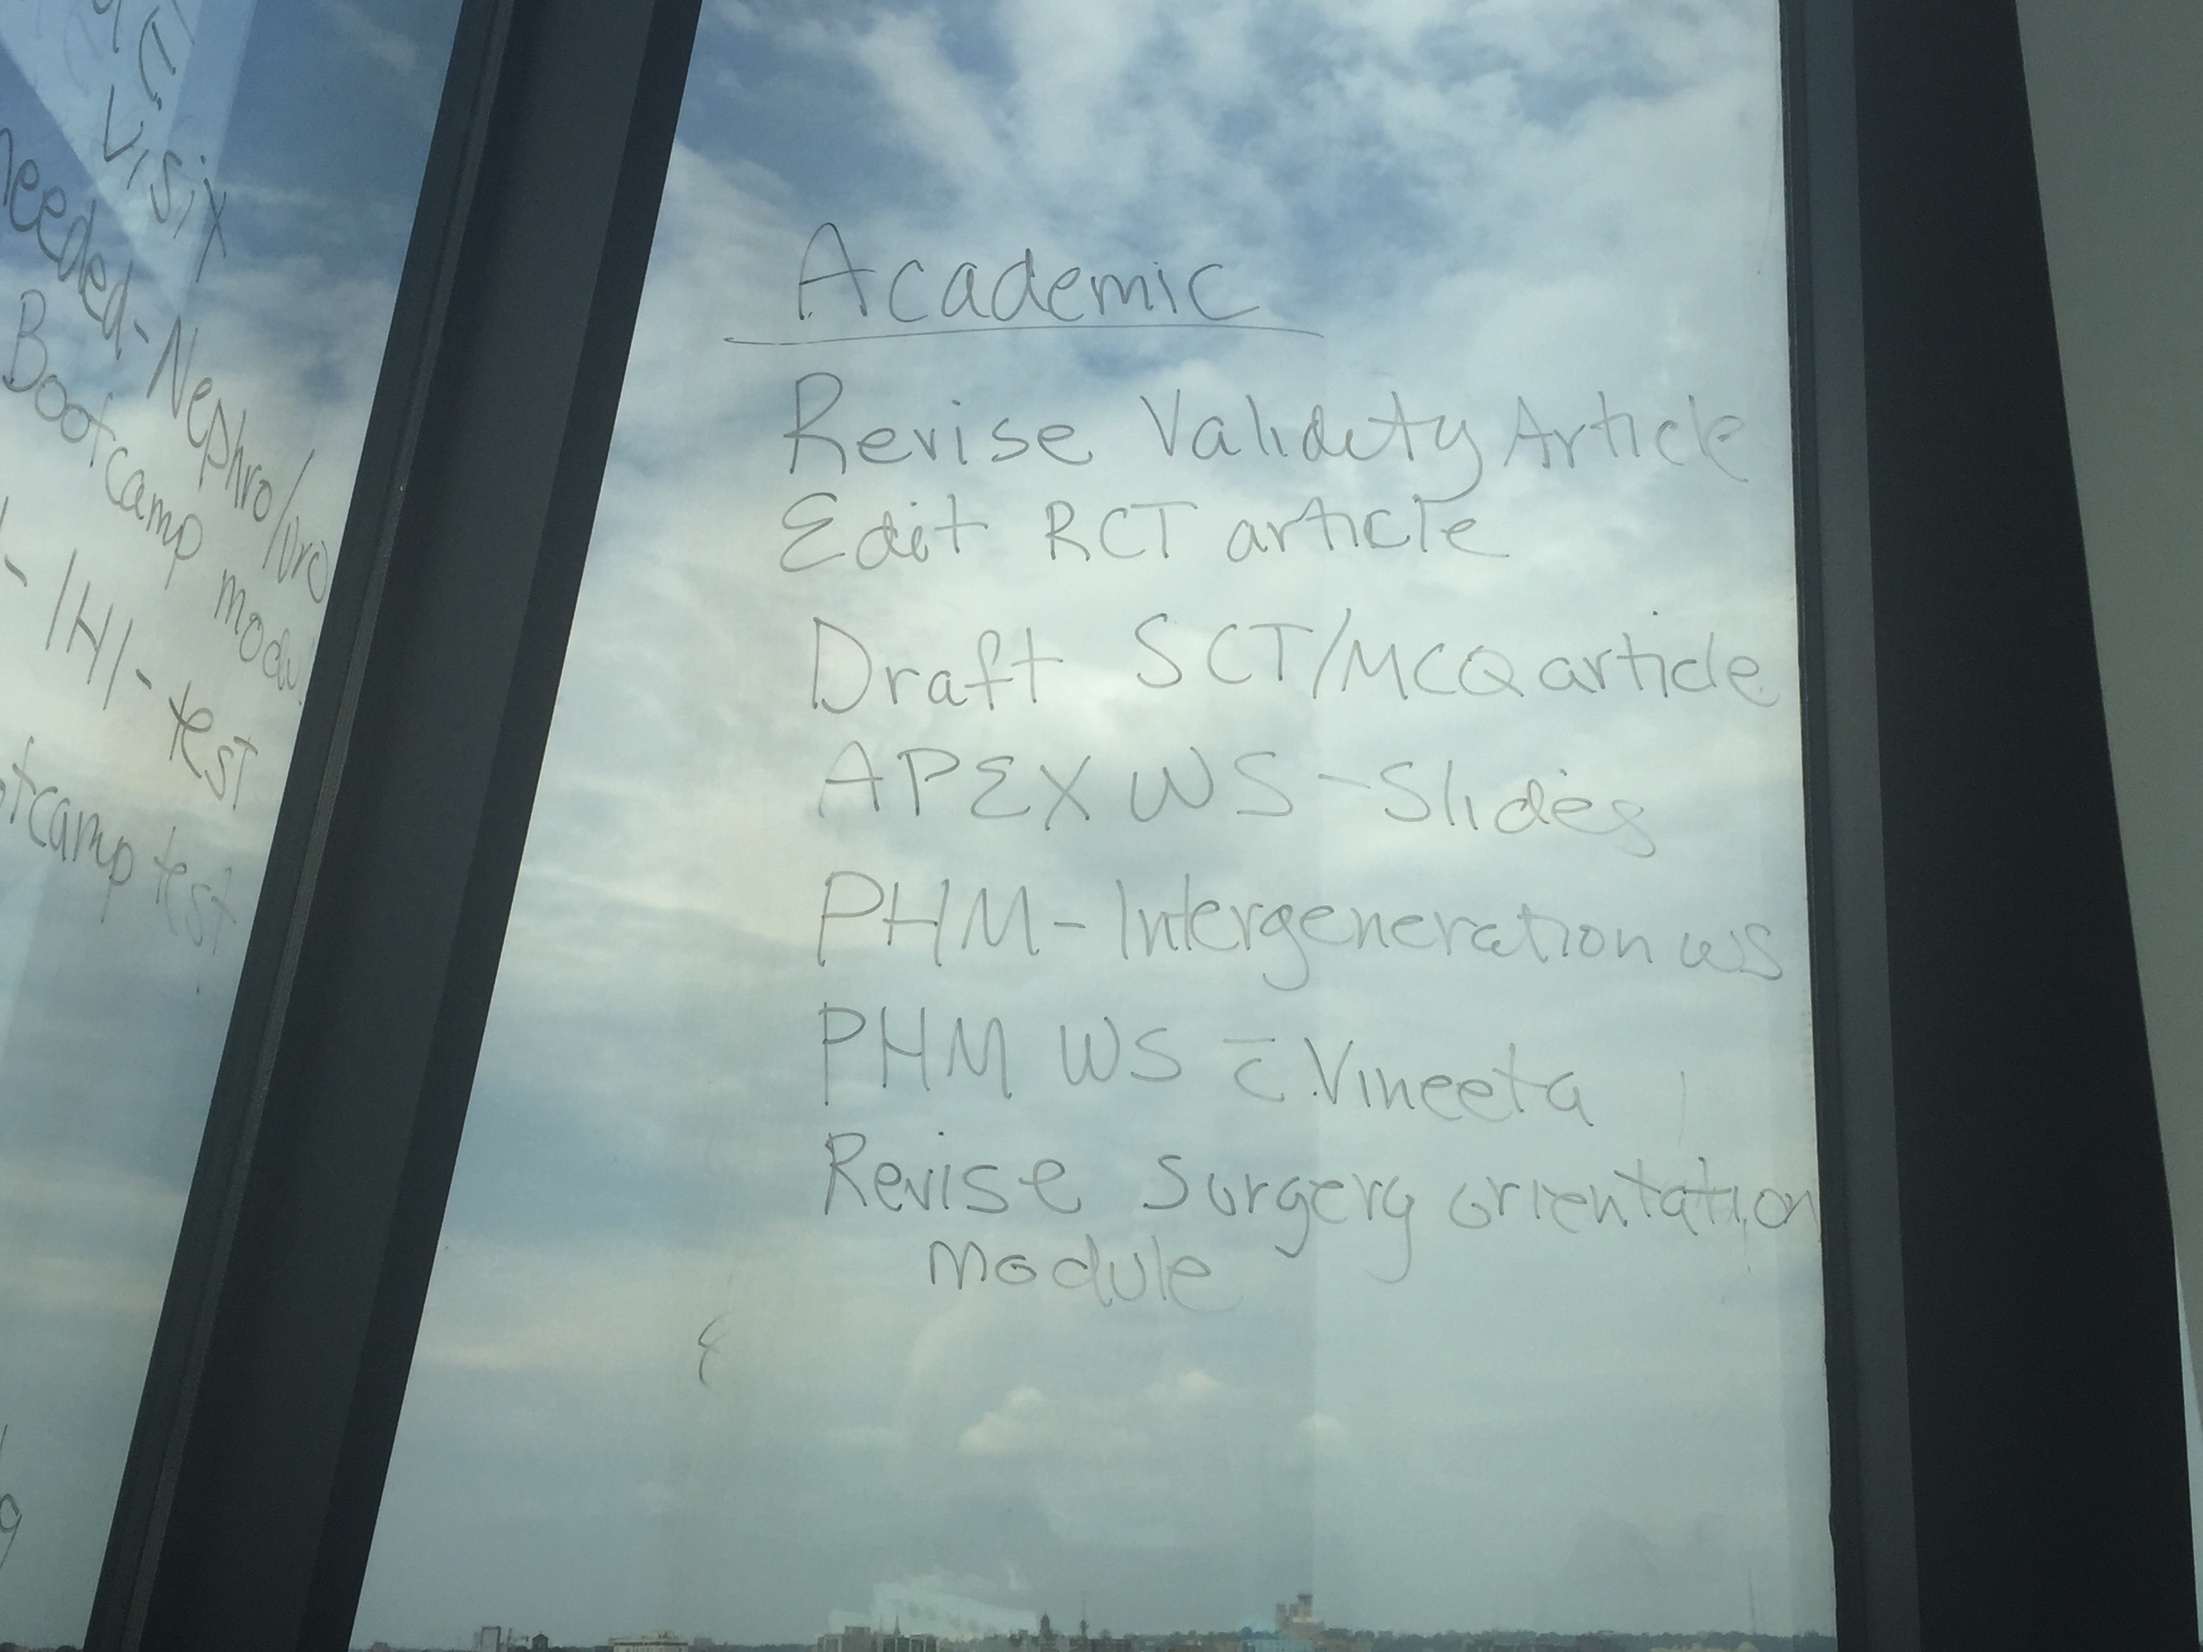 Visix
needed- Nephro/uro
Bootcamp modu
- IHI- test
tcamp test
Academic
Revise Validity Article
Edit RCT article
Draft SCT/MCQ article
APEX WS - Slides
PHM - Intergeneration WS
PHM WS c̄ Vineeta
Revise Surgery orientation
module